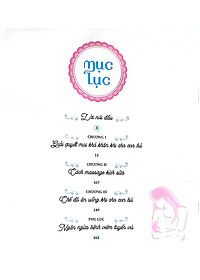 Mục
Lục
Lời nói đầu
8
CHƯƠNG I
Giải quyết mọi khó khăn khi cho con bú
12
CHƯƠNG II
Cách massage kích sữa
107
CHƯƠNG III
Chế độ ăn uống khi cho con bú
149
PHỤ LỤC
Ngăn ngừa bệnh viêm tuyến vú
163